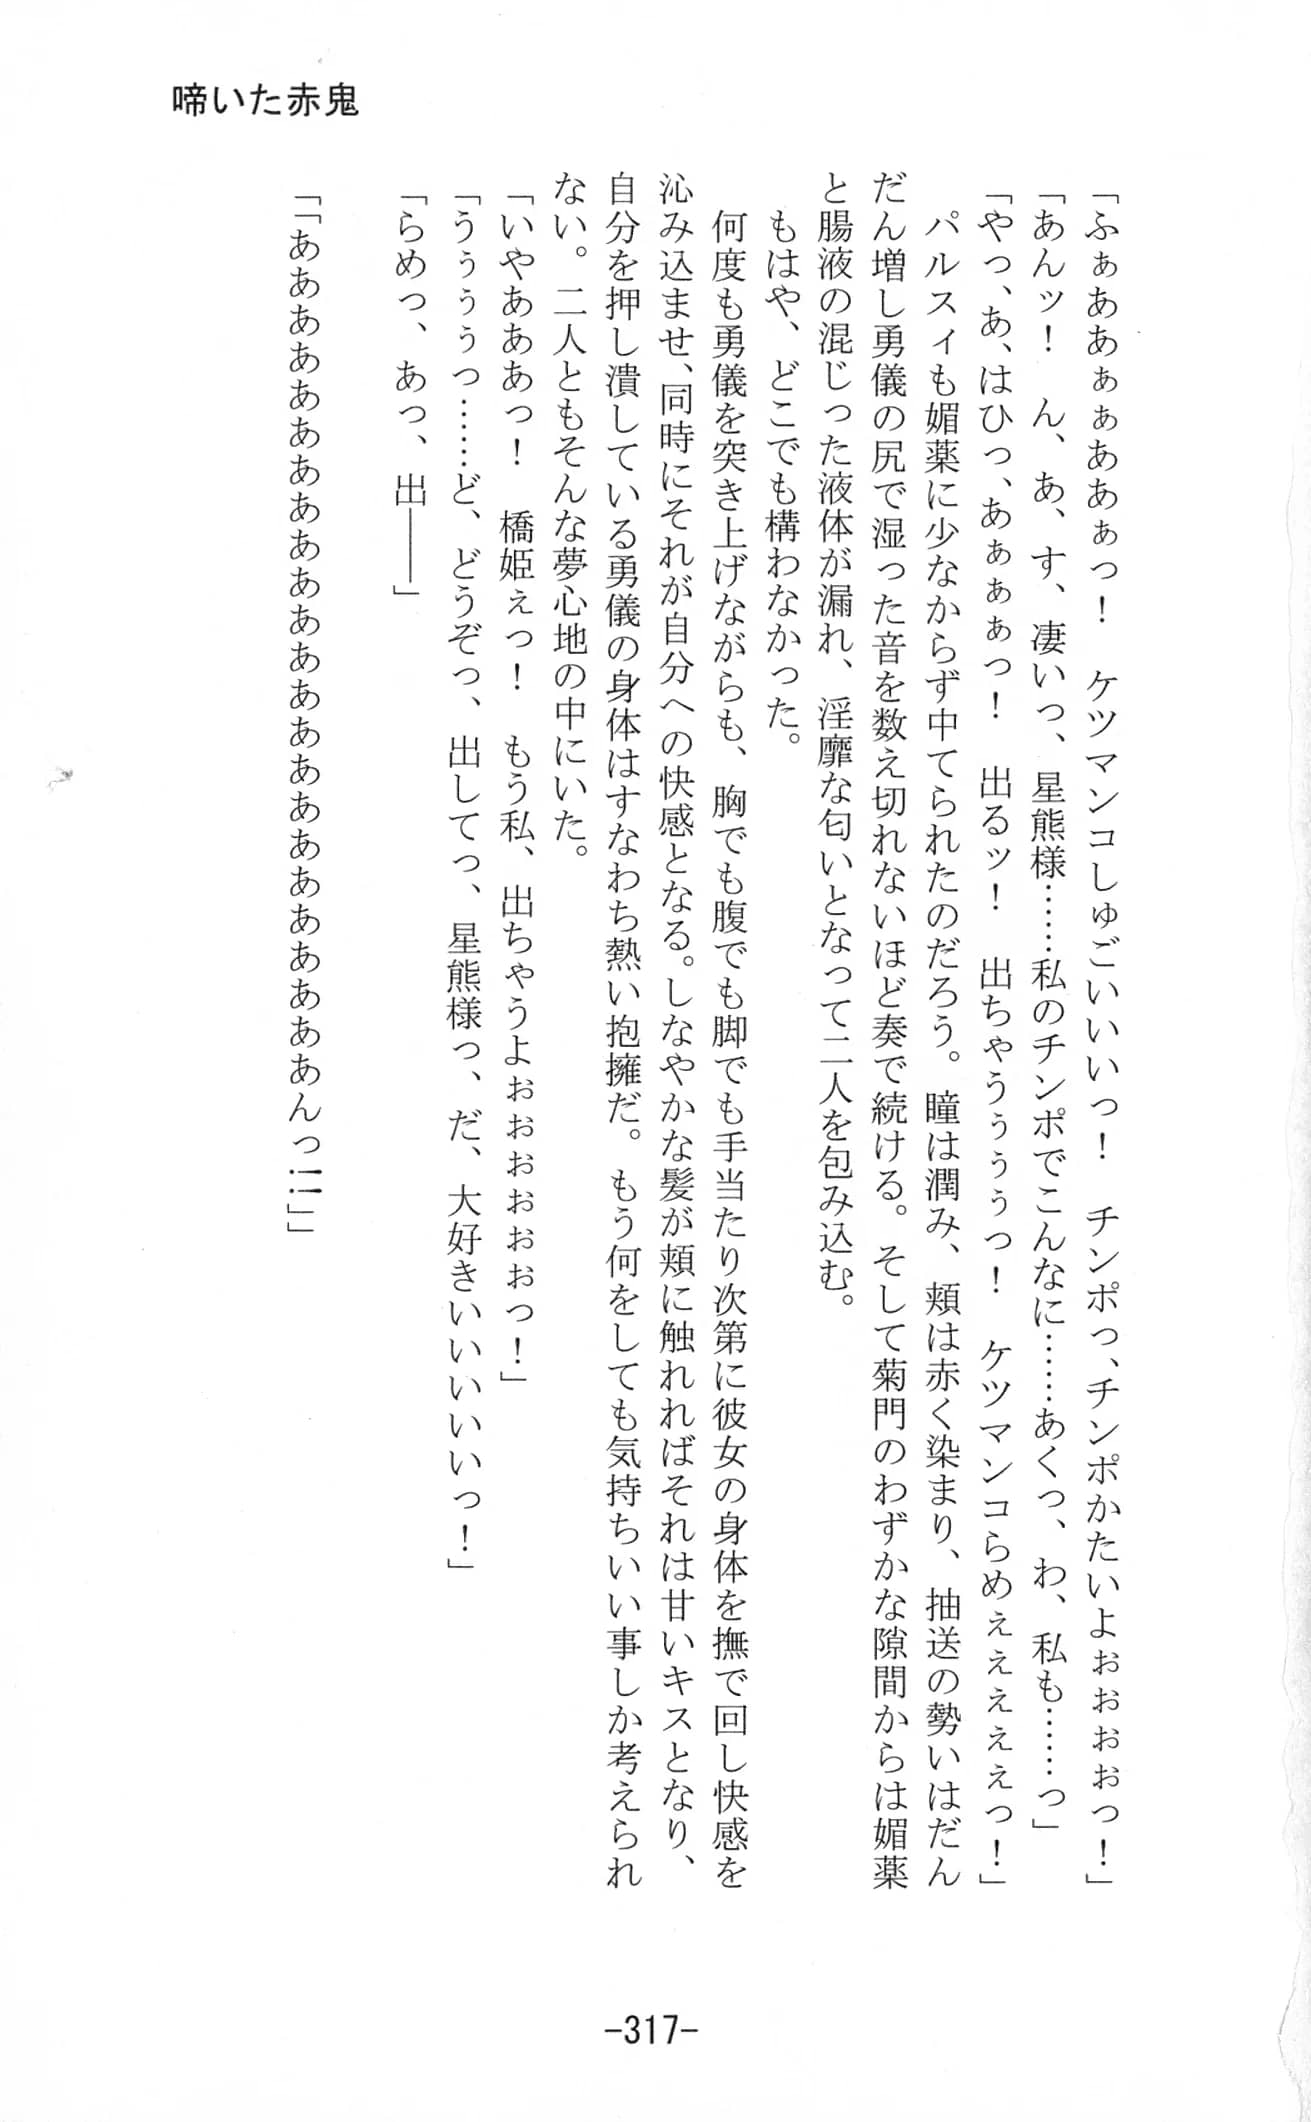 啼いた赤鬼
「ふぁああぁぁああぁっ！　ケツマンコしゅごいいいっ！　チンポっ、チンポかたいよぉぉぉぉっ！」
「あんッ！　ん、あ、す、凄いっ、星熊様……私のチンポでこんなに……あくっ、わ、私も……っ」
「やっ、あ、はひっ、あぁぁぁっ！　出るッ！　出ちゃうぅぅぅっ！　ケツマンコらめぇぇぇぇぇっ！」
　パルスィも媚薬に少なからず中てられたのだろう。瞳は潤み、頬は赤く染まり、抽送の勢いはだん
だん増し勇儀の尻で湿った音を数え切れないほど奏で続ける。そして菊門のわずかな隙間からは媚薬
と腸液の混じった液体が漏れ、淫靡な匂いとなって二人を包み込む。
　もはや、どこでも構わなかった。
　何度も勇儀を突き上げながらも、胸でも腹でも脚でも手当たり次第に彼女の身体を撫で回し快感を
沁み込ませ、同時にそれが自分への快感となる。しなやかな髪が頬に触れればそれは甘いキスとなり、
自分を押し潰している勇儀の身体はすなわち熱い抱擁だ。もう何をしても気持ちいい事しか考えられ
ない。二人ともそんな夢心地の中にいた。
「いやあああっ！　橋姫ぇっ！　もう私、出ちゃうよぉぉぉぉぉぉっ！」
「うぅぅぅっ……ど、どうぞっ、出してっ、星熊様っ、だ、大好きいいいいいっ！」
「らめっ、あっ、出――」
「「あああああああああああああああああああああああんっ!!」」
-317-